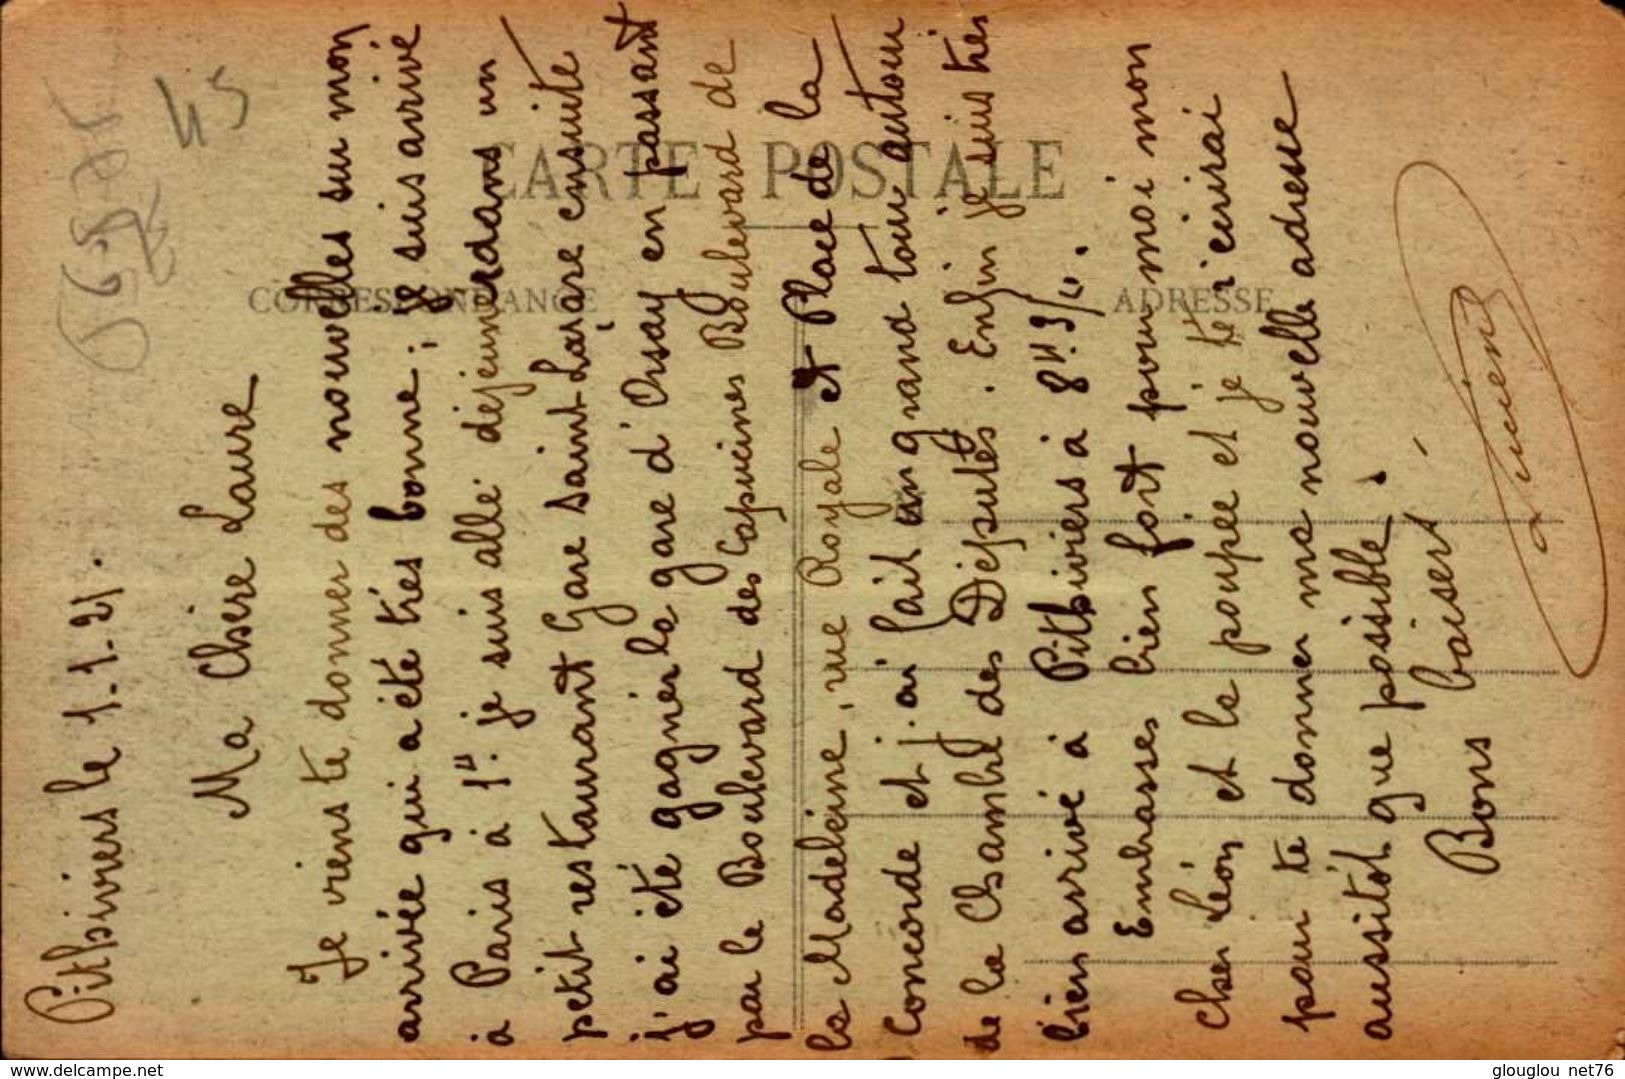 Pithiviers le 1.1.21.
Ma Chère Laure
Je viens te donner des nouvelles sur mon
arrivée qui a été très bonne ; je suis arrivé
à Paris à 1H. je suis allé déjeuner dans un
petit restaurant Gare Saint Lazare ensuite
j'ai été gagner la gare d'Orsay en passant
par le Boulevard des Capucines Boulevard de
la Madeleine, rue Royale et Place de la
Concorde et j'ai fait un grand tour autour
de la Chambre des Députés. Enfin je suis très
bien arrivé à Pithiviers à 8H.3/4.
Embrasses bien fort pour moi mon
cher Léon et la poupée et je t'écrirai
pour te donner ma nouvelle adresse
aussitôt que possible.
Bons baisers.
Lucien
45
CARTE POSTALE
CORRESPONDANCE
ADRESSE
www.delcampe.net
glouglou_net76